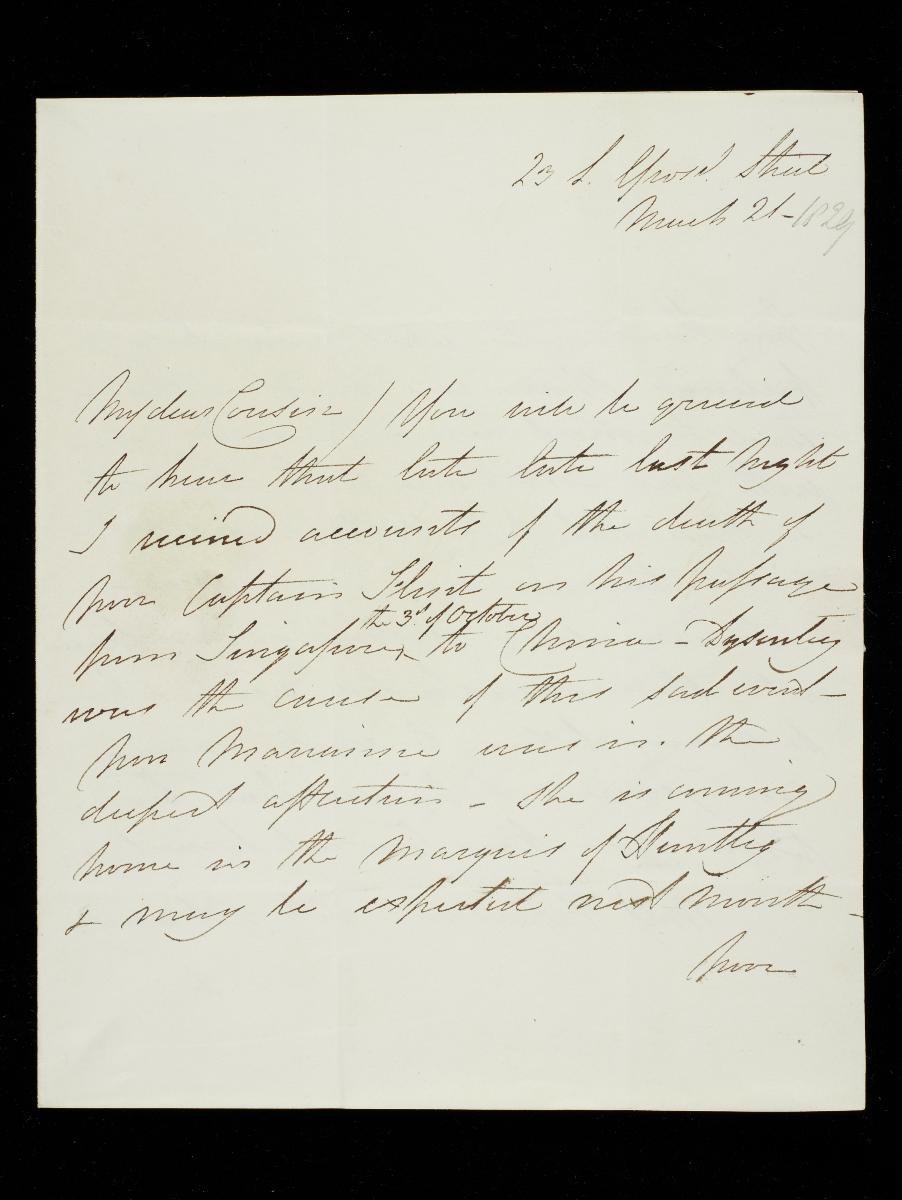 23 L. Grosr. Street
March 21 - 1829
My dear Cousin / You will be grieved
to hear that late late last night
I received accounts of the death of
poor Captain Flint on his passage
the 3d. of October
from Singapore to China - Dysentery
was the cause of this sad event -
poor Marianne was in the
deepest affliction - She is coming
home in the Marquis of Huntley
& may be expected next month -
poor